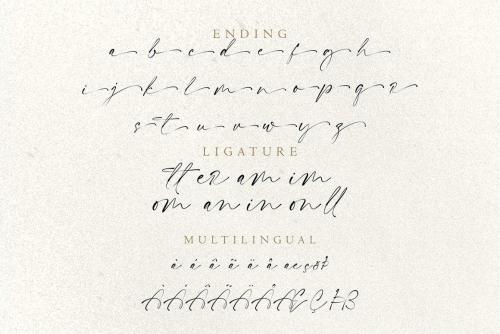 ENDING
a b c d e f g h
i j k l m n o p q r
s t u v w y z
LIGATURE
tt er am im
om an in on ll
MULTILINGUAL
à á â ã ä å æ ç
À Á Â Ã Ä Å Æ Ç